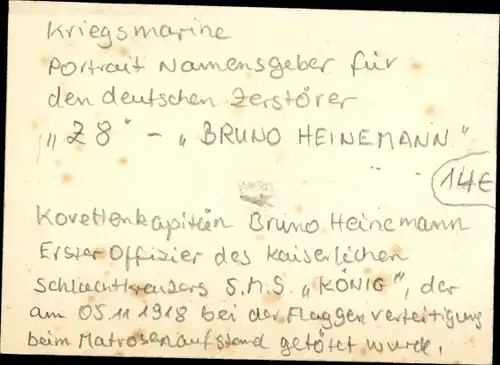 Kriegsmarine
Portrait Namensgeber für
den deutschen Zerstörer
„Z8" - „BRUNO HEINEMANN"
14€
Korvettenkapitän Bruno Heinemann
Erster Offizier des Kaiserlichen
Schlachtkreuzers S.M.S. „KÖNIG", der
am 05.11.1918 bei der Flaggenverteitigung
beim Matrosenaufstand getötet wurde.